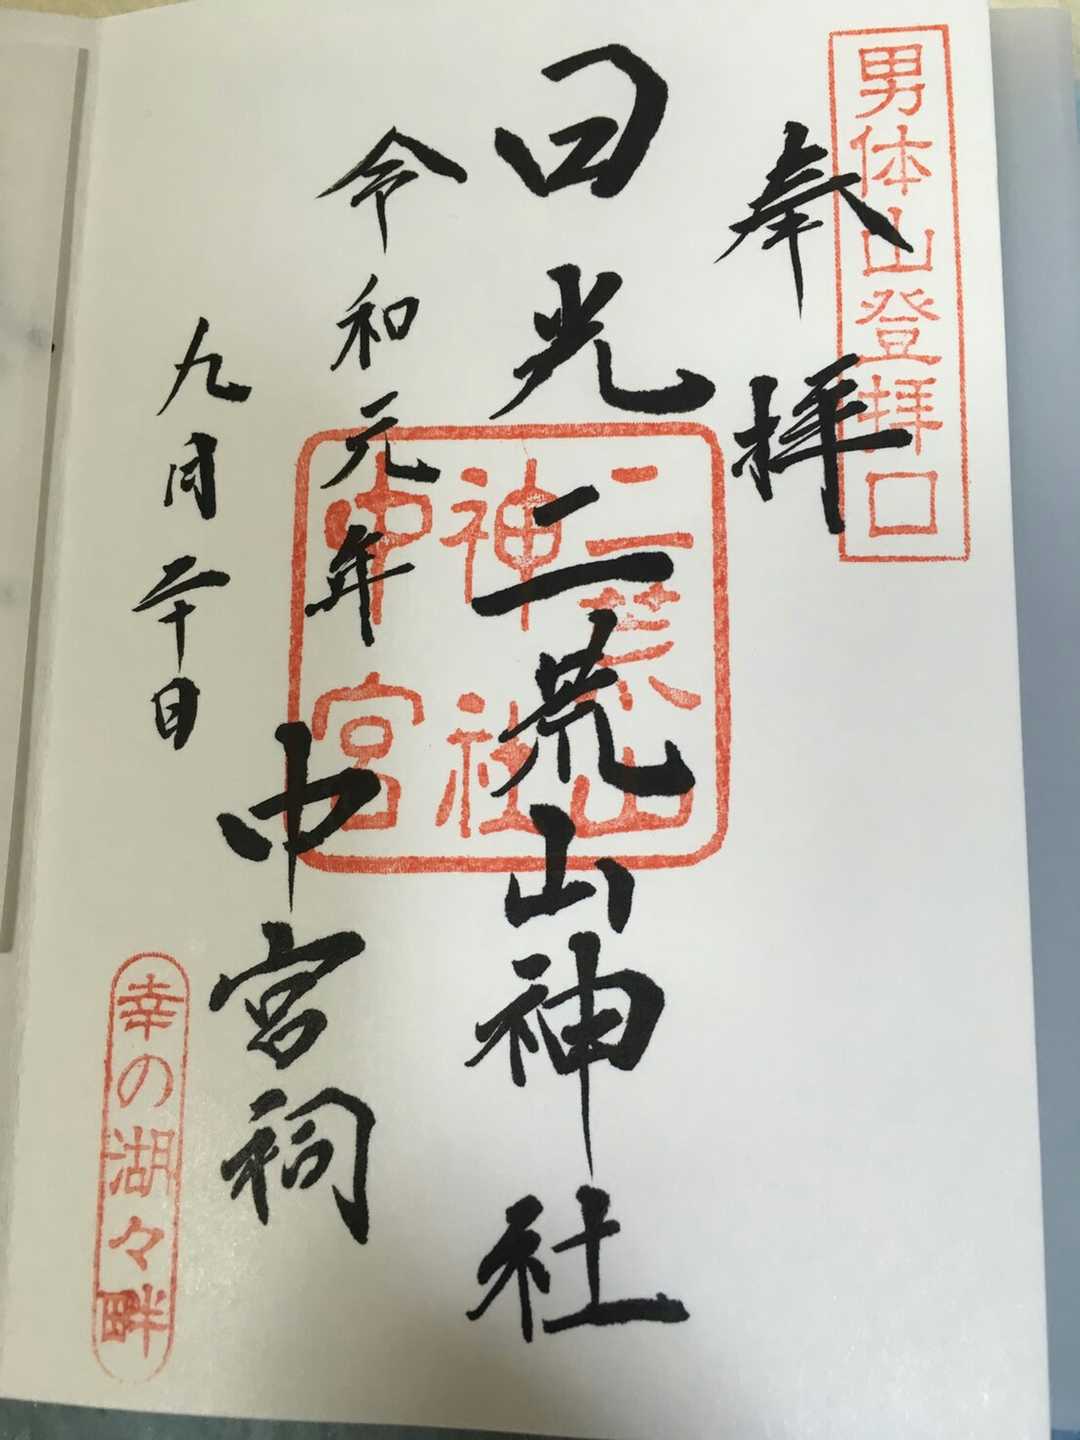 男体山登拝口
奉拝
日光二荒山神社
二荒山
神社
中宮
令和元年
九月二十日
中宮祠
幸の湖々畔